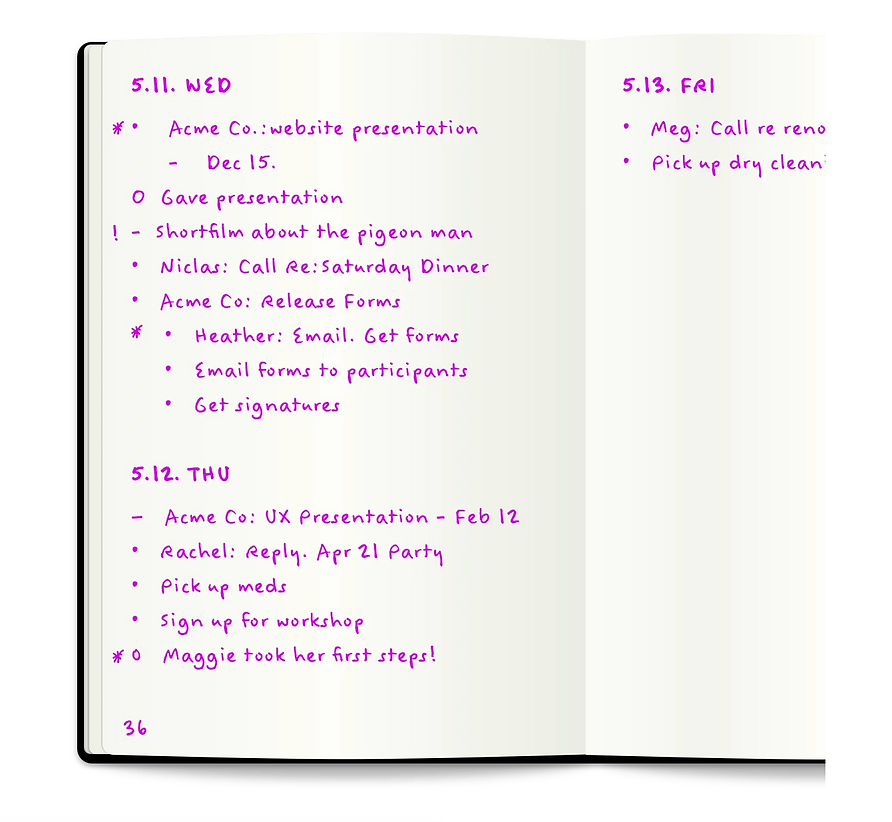 5.11. WED
* • Acme Co.: website presentation
- Dec 15.
O Gave presentation
! - Shortfilm about the pigeon man
• Niclas: Call Re: Saturday Dinner
• Acme Co: Release Forms
* • Heather: Email. Get forms
• Email forms to participants
• Get signatures
5.12. THU
- Acme Co: UX Presentation - Feb 12
• Rachel: Reply. Apr 21 Party
• Pick up meds
• Sign up for workshop
* O Maggie took her first steps!
36
5.13. FRI
• Meg: Call re
• Pick up dry